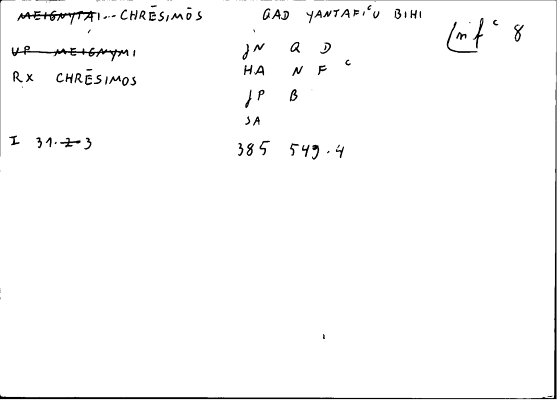 MEIGNYTAI... CHRĒSIMŌS GAD YANTAFIᶜU BIHI
nfᶜ 8
VP MEIGNYMI
RX CHRĒSIMOS
JN Q D
HA N Fᶜ
JP B
SA
I 31.2 3 385 549.4